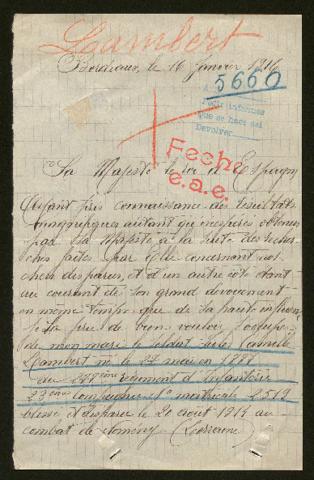 Lambert
Bordeaux, le 16 Janvier 1916
5660
Pedir informes
que se hace así
Devolver
Fecha
e.a.e.
Sa Majesté le roi d'Espagne
Ayant pris connaissance des résultats
magnifiques autant qu'inespérés obtenus
par Sa Majesté à la suite des recher
ches faites par elle concernant nos
chers disparus, et d'un autre côté étant
au courant de son grand dévouement
en même temps que de sa haute influence
prie de bien vouloir s'occuper
de mon mari le soldat Jules Camille
Lambert né le 27 mai en 1881
du régiment d'Infanterie
23ème compagnie matricule
blessé et disparu le 20 août 1914 au
combat de (Lorraine)